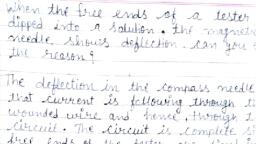 When the free ends of a tester
dipped into a solution. the magnetic
needle shows deflection can you
the reason?
The deflection in the compass needle
that current is following through t
wounded wire and hence, through t
circuit. The circuit is complete s
free ends of the tester are